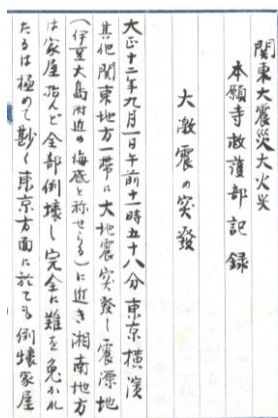 関東大震災大火災
本願寺救護部記録
大激震の突發
大正十二年九月一日午前十一時五十八分東京横濱
其他関東地方一帯に大地震突発し震源地
(伊豆大島附近の海底と称せらる)に近き湘南地方
は家屋殆んど全部倒壊し完全に難を免かれ
たるは極めて尠く東京方面に於ても倒壊家屋